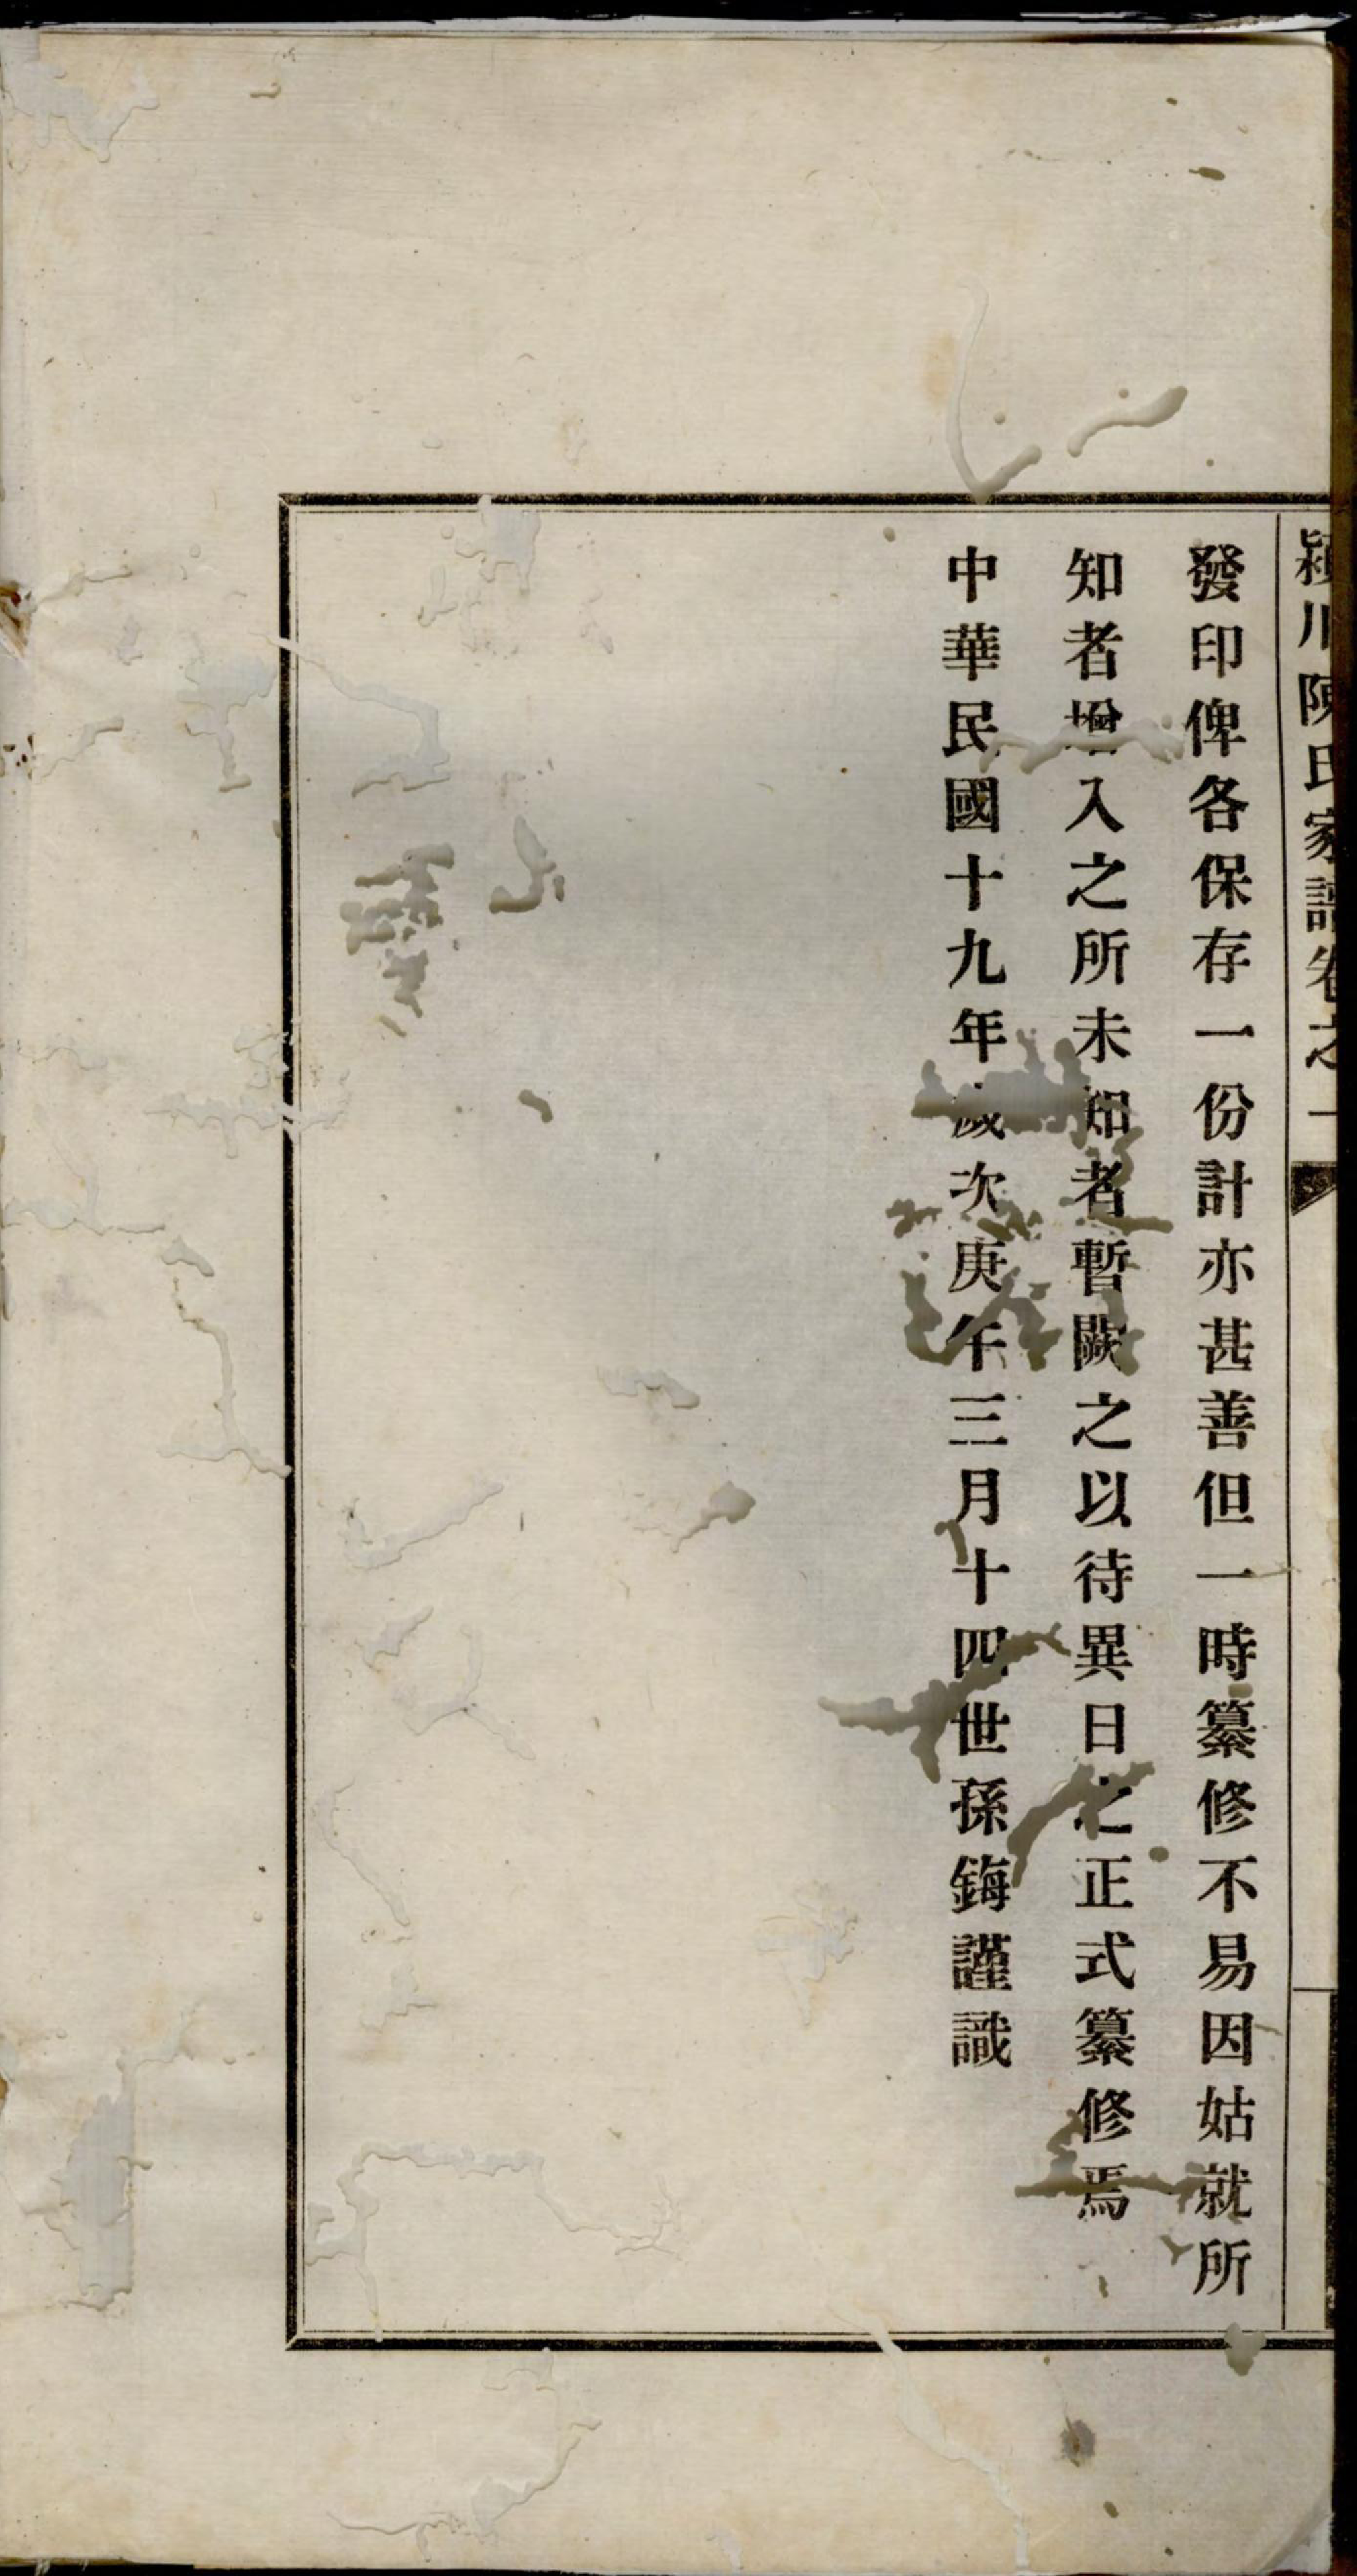 潁川陳氏家譜卷之一
發印俾各保存一份計亦甚善但一時纂修不易因姑就所
知者增入之所未知者暫闕之以待異日之正式纂修焉
中華民國十九年歲次庚午三月十四世孫鋂謹識